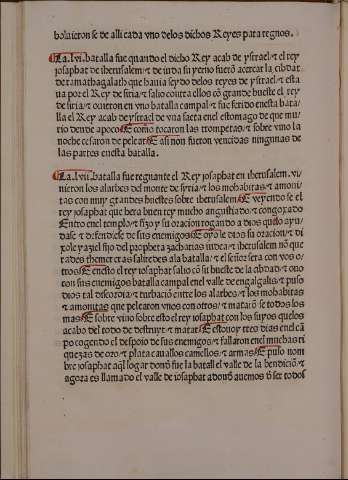 boluieron se de alli cada vno delos dichos Reyes para regnos.
La .lvi. batalla fue quando el dicho Rey acab de ysrael ⁊ el rey
josaphat de iherusalem ⁊ de iuda su yerno fuerõ acercar la cibdat
de ramathagalath que hauia seydo delos reyes de ysrael ⁊ esta
ua por el Rey de siria ⁊ salio contra ellos cõ grande hueste el rey
de siria ⁊ ouieron en vno batalla campal ⁊ fue ferido enesta bata
lla el Rey acab de ysrael de vna saeta enel estomago de que mu
rio dende apoco E como tocaron las trompetas ⁊ sobre vino la
noche cesaron de pelear E asi non fueron vencidas ningunas de
las partes enesta batalla.
La .lvii. batalla fue regnante el Rey josaphat en iherusalem. vi
nieron los alarbes del monte de syria ⁊ los mohabitas ⁊ amoni
tas con muy grandes huestes sobre iherusalem E veyendo se el
rey josaphat que hera buen rey mucho angustiado ⁊ congoxado
Entro enel templo ⁊ fizo y su oracion rogando a dios quelo ayu
dase ⁊ defendiese de sus enemigos E oyo le dios su oracion ⁊ di
xole yaziel fijo del propheta zacharias iudea ⁊ iherusalem nõ que
rades themer cras saliredes ala batalla ⁊ el señor sera con vos o
tros E enesto el rey iosaphat salio cõ su hueste de la cibdad ⁊ ouo
con sus enemigos batalla campal enel valle de engalgalis ⁊ puso
dios tal discordia ⁊ turbaciõ entre los alarbes ⁊ los mohabitas
⁊ amonitas que pelearon vnos con otros ⁊ matarõ se todos los
mas E sobre vino sobre esto el rey iosaphat con los suyos quelos
acabo del todo de destruyr ⁊ matar E estouo y tres dias enel cã
po cogendo el despoio de sus enemigos ⁊ fallaron enel muchas ri
quezas de oro ⁊ plata cauallos camellos ⁊ armas E puso nom
bre josaphat aql logar donõ fue la batall el valle de la bendiciõ ⁊
agora es llamado el valle de iosaphat adonõ auemos õ ser todos